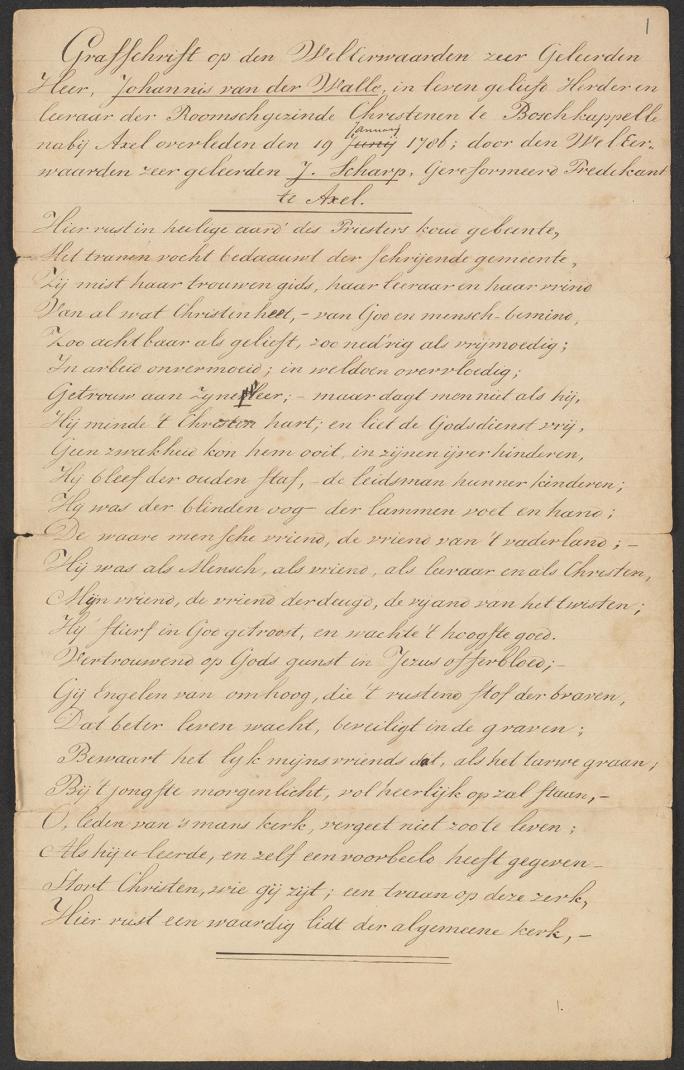 1
Grafschrift op den WelEerwaarden zeer Geleerden
Heer, Johannis van der Walle, in leven geliefd Herder en
leeraar der Roomschgezinde Christenen te Boschkappelle
januarij
nabij Axel overleden den 19 junij 1786; door den WelEer-
waarden zeer geleerden J. Scharp, Gereformeerd Predikant
te Axel.
Hier rust in heilige aard' des Priesters koud gebeente,
Het tranen vocht bedaauwt der schrijende gemeente,
Zij mist haar trouwen gids, haar leeraar en haar vrind
Van al wat Christen heet, - van God en mensch - bemind,
Zoo achtbaar als geliefd, zoo ned'rig als vrijmoedig;
In arbeid onvermoeid; in weldoen overvloedig;
Getrouw aan zyne leer; - maar dagt men niet als hij,
Hij minde 't Christen hart; en liet de Godsdienst vrij,
Geen zwakheid kon hem ooit, in zijnen ijver hinderen,
Hij bleef der ouden staf, - de leidsman hunner kinderen;
Hy was der blinden oog - der lammen voet en hand;
De waare mensche vriend, de vriend van 't vaderland; -
Hij was als Mensch, als vriend, als leeraar en als Christen,
Mijn vriend, de vriend der deugd, de vijand van het twisten;
Hij stierf in God getroost, en wachte 't hoogste goed.
Vertrouwend op Gods gunst in Jezus offerbloed; -
Gij Engelen van omhoog, die 't rustend stof der braven,
Dat beter leven wacht, beveiligt in de graven;
Bewaart het lyk mijns vriends dat, als het tarwe graan;
Bij 't jongste morgenlicht, vol heerlijk op zal staan, -
O, leden van 's mans kerk, vergeet niet zoo te leven;
Als hij u leerde, en zelf een voorbeeld heeft gegeven -
Stort Christen, wie gij zijt; een traan op deze zerk,
Hier rust een waardig lidt der algemeene kerk, -